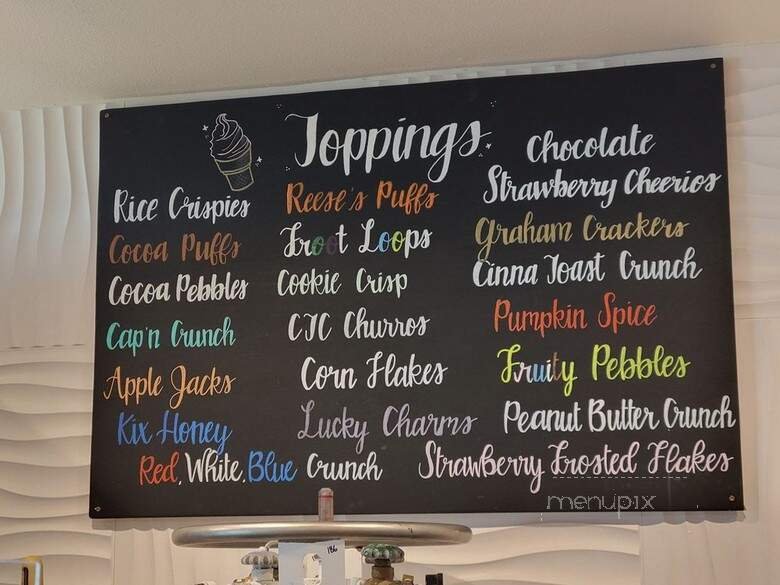 Toppings
Rice Crispies
Cocoa Puffs
Cocoa Pebbles
Cap'n Crunch
Apple Jacks
Kix Honey
Red, White, Blue Crunch
Reese's Puffs
Froot Loops
Cookie Crisp
CTC Churros
Corn Flakes
Lucky Charms
Chocolate
Strawberry Cheerios
Graham Crackers
Cinna Toast Crunch
Pumpkin Spice
Fruity Pebbles
Peanut Butter Crunch
Strawberry Frosted Flakes
menupix
186